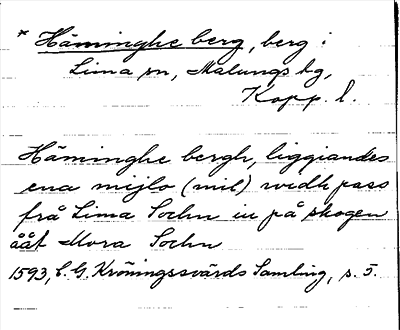 * Häminghe berg, berg i
Lima sn, Malungs tg,
Kopp. l.
Häminghe bergh, liggiandes
ena mijlo (mil) widh pass
frå Lima Sochn in på skogen
ååt Mora Sochn
1593, C. G. Kröningssvärds Samling, s. 5.